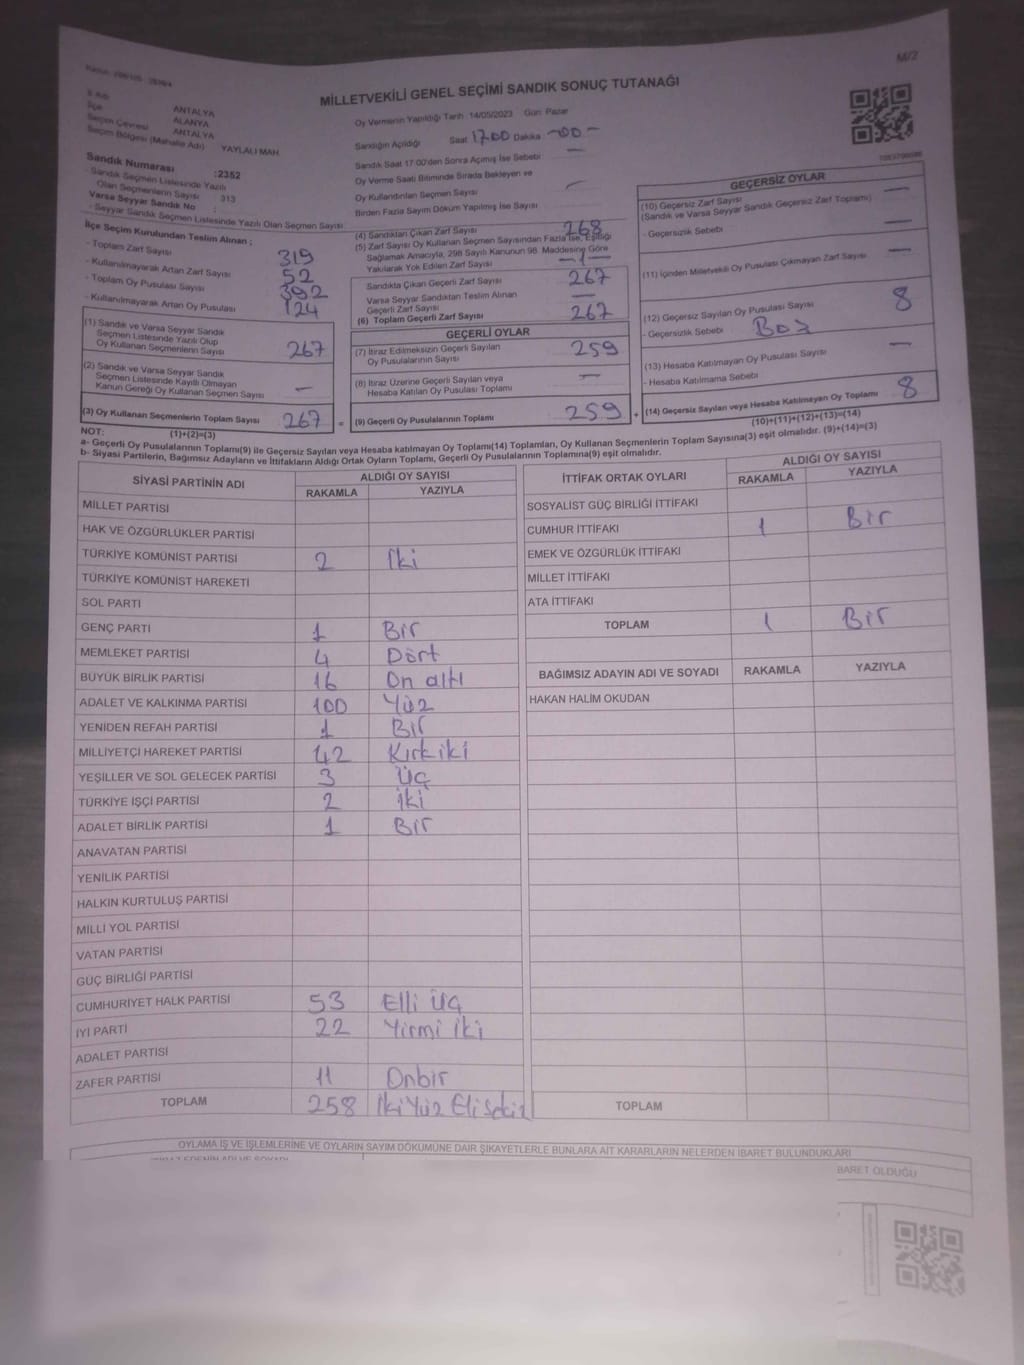 M/2
MİLLETVEKİLİ GENEL SEÇİMİ SANDIK SONUÇ TUTANAĞI
İlçe ANTALYA
Seçim Çevresi ALANYA
Seçim Bölgesi (Mahalle Adı) ANTALYA
YAYLALI MAH.
Sandık Numarası :2352
- Sandık Seçmen Listesinde Yazılı Olan Seçmenlerin Sayısı 313
Varsa Seyyar Sandık No :
- Seyyar Sandık Seçmen Listesinde Yazılı Olan Seçmen Sayısı
Oy Vermenin Yapıldığı Tarih 14/05/2023 Gün: Pazar
Sandığın Açıldığı Saat 17.00 Dakika -00.-
Sandık Saat 17:00'den Sonra Açılmış İse Sebebi —
Oy Verme Saati Bitiminde Sırada Bekleyen ve
Oy Kullandırılan Seçmen Sayısı —
Birden Fazla Sayım Döküm Yapılmış İse Sayısı
İlçe Seçim Kurulundan Teslim Alınan :
- Toplam Zarf Sayısı 319
- Kullanılmayarak Artan Zarf Sayısı 52
- Toplam Oy Pusulası Sayısı 392
- Kullanılmayarak Artan Oy Pusulası 124
(1) Sandık ve Varsa Seyyar Sandık
Seçmen Listesinde Yazılı Olup
Oy Kullanan Seçmenlerin Sayısı 267
(2) Sandık ve Varsa Seyyar Sandık
Seçmen Listesinde Kayıtlı Olmayan
Kanun Gereği Oy Kullanan Seçmen Sayısı —
(3) Oy Kullanan Seçmenlerin Toplam Sayısı 267
(1)+(2)=(3)
(4) Sandıktan Çıkan Zarf Sayısı 268
(5) Zarf Sayısı Oy Kullanan Seçmen Sayısından Fazla İse, Eşitliği
Sağlamak Amacıyla, 298 Sayılı Kanunun 98. Maddesine Göre
Yakılarak Yok Edilen Zarf Sayısı -1-
Sandıkta Çıkan Geçerli Zarf Sayısı 267
Varsa Seyyar Sandıktan Teslim Alınan
Geçerli Zarf Sayısı —
(6) Toplam Geçerli Zarf Sayısı 267
GEÇERLİ OYLAR
(7) İtiraz Edilmeksizin Geçerli Sayılan
Oy Pusulalarının Sayısı 259
(8) İtiraz Üzerine Geçerli Sayılan veya
Hesaba Katılan Oy Pusulası Toplamı —
= (9) Geçerli Oy Pusulalarının Toplamı 259 +
GEÇERSİZ OYLAR
(10) Geçersiz Zarf Sayısı —
(Sandık ve Varsa Seyyar Sandık Geçersiz Zarf Toplamı)
- Geçersizlik Sebebi —
(11) İçinden Milletvekili Oy Pusulası Çıkmayan Zarf Sayısı —
(12) Geçersiz Sayılan Oy Pusulası Sayısı 8
- Geçersizlik Sebebi Boş
(13) Hesaba Katılmayan Oy Pusulası Sayısı —
- Hesaba Katılmama Sebebi
(14) Geçersiz Sayılan veya Hesaba Katılmayan Oy Toplamı 8
(10)+(11)+(12)+(13)=(14)
NOT:
a- Geçerli Oy Pusulalarının Toplamı(9) ile Geçersiz Sayılan veya Hesaba katılmayan Oy Toplamı(14) Toplamları, Oy Kullanan Seçmenlerin Toplam Sayısına(3) eşit olmalıdır. (9)+(14)=(3)
b- Siyasi Partilerin, Bağımsız Adayların ve İttifakların Aldığı Ortak Oyların Toplamı, Geçerli Oy Pusulalarının Toplamına(9) eşit olmalıdır.
SİYASİ PARTİNİN ADI ALDIĞI OY SAYISI
RAKAMLA YAZIYLA
MİLLET PARTİSİ
HAK VE ÖZGÜRLÜKLER PARTİSİ
TÜRKİYE KOMÜNİST PARTİSİ 2 İki
TÜRKİYE KOMÜNİST HAREKETİ
SOL PARTİ
GENÇ PARTİ 1 Bir
MEMLEKET PARTİSİ 4 Dört
BÜYÜK BİRLİK PARTİSİ 16 On altı
ADALET VE KALKINMA PARTİSİ 100 Yüz
YENİDEN REFAH PARTİSİ 1 Bir
MİLLİYETÇİ HAREKET PARTİSİ 42 Kırk iki
YEŞİLLER VE SOL GELECEK PARTİSİ 3 Üç
TÜRKİYE İŞÇİ PARTİSİ 2 iki
ADALET BİRLİK PARTİSİ 1 Bir
ANAVATAN PARTİSİ
YENİLİK PARTİSİ
HALKIN KURTULUŞ PARTİSİ
MİLLİ YOL PARTİSİ
VATAN PARTİSİ
GÜÇ BİRLİĞİ PARTİSİ
CUMHURİYET HALK PARTİSİ 53 Elli üç
İYİ PARTİ 22 Yirmi iki
ADALET PARTİSİ
ZAFER PARTİSİ 11 Onbir
TOPLAM 258 İki Yüz Eli Sekiz
İTTİFAK ORTAK OYLARI ALDIĞI OY SAYISI
RAKAMLA YAZIYLA
SOSYALİST GÜÇ BİRLİĞİ İTTİFAKI
CUMHUR İTTİFAKI 1 Bir
EMEK VE ÖZGÜRLÜK İTTİFAKI
MİLLET İTTİFAKI
ATA İTTİFAKI
TOPLAM 1 Bir
BAĞIMSIZ ADAYIN ADI VE SOYADI RAKAMLA YAZIYLA
HAKAN HALİM OKUDAN
TOPLAM
OYLAMA İŞ VE İŞLEMLERİNE VE OYLARIN SAYIM DÖKÜMÜNE DAİR ŞİKAYETLERLE BUNLARA AİT KARARLARIN NELERDEN İBARET BULUNDUKLARI
BARET OLDUĞU